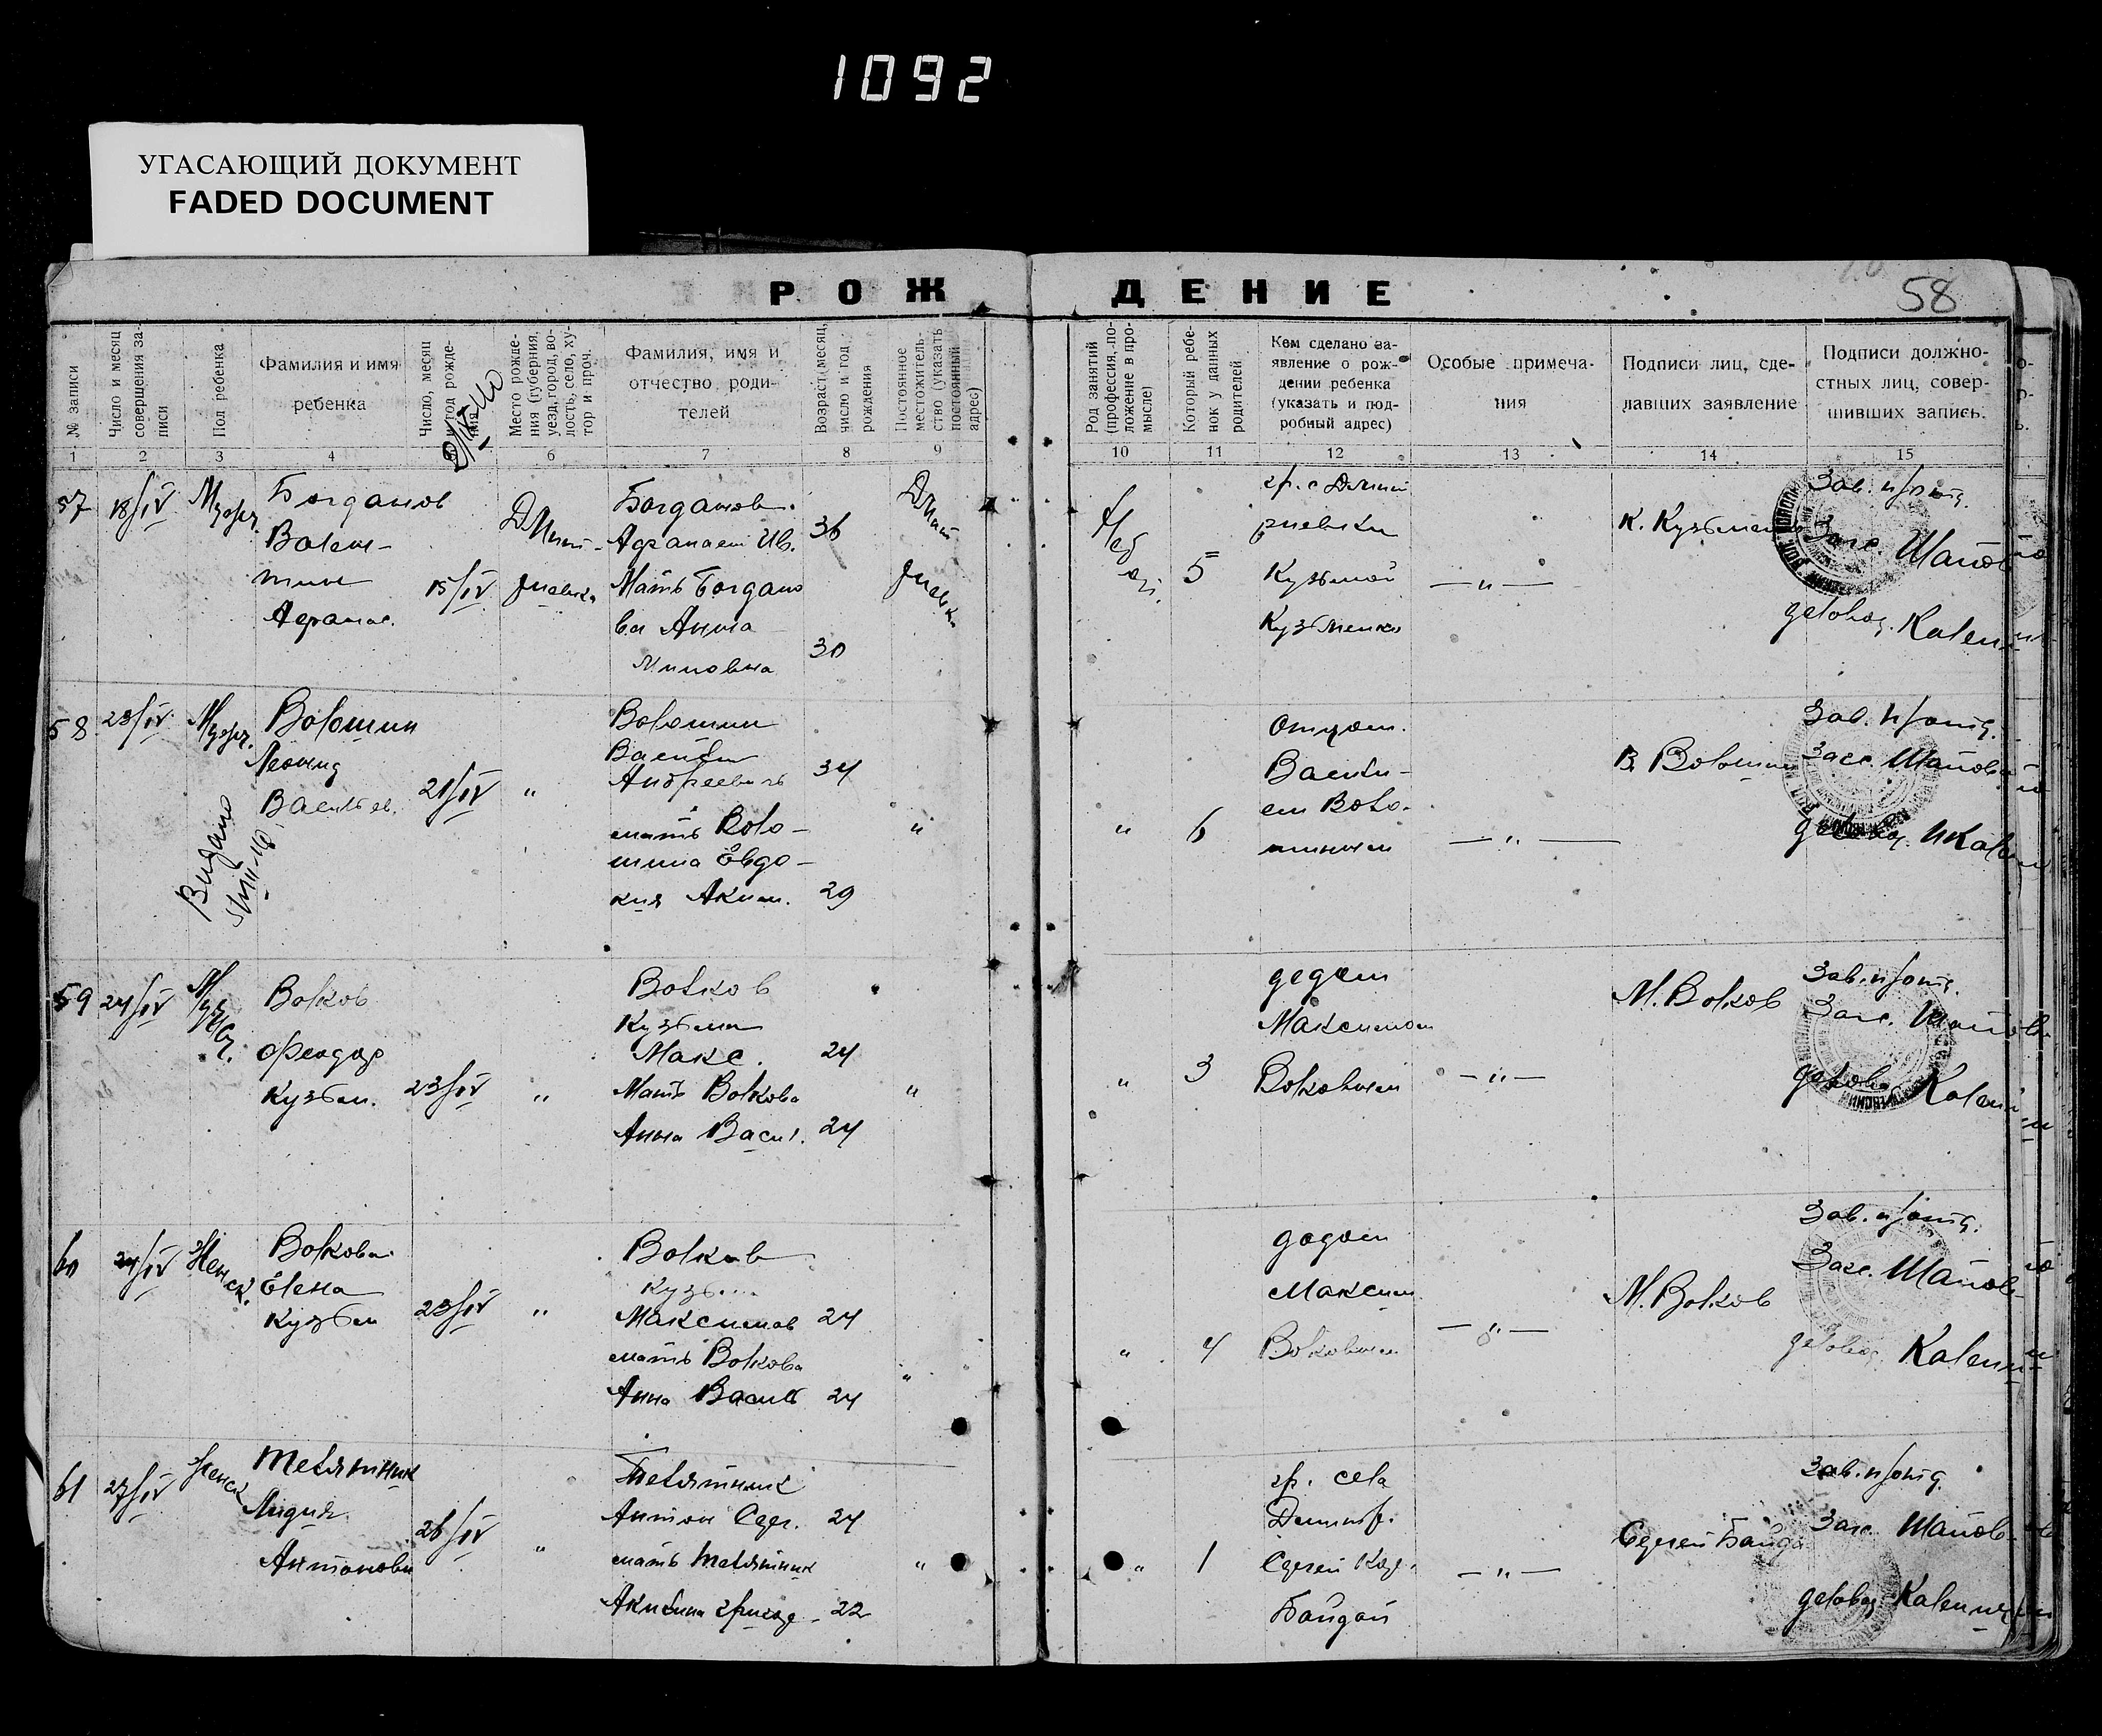 1092
УГАСАЮЩИЙ ДОКУМЕНТ
FADED DOCUMENT
РОЖДЕНИЕ
58
№ записи
Число и месяц совершения записи
Пол ребенка
Фамилия и имя
ребенка
Число, месяц и год рождения
Место рождения (губерния, уезд, город, волость, село, хутор и проч.
Фамилия, имя и
отчество роди-
телей
Возраст (месяц, число и год рождения
Постоянное местожительство (указать постоянный адрес)
Род занятий (профессия, положение в промысле)
Который ребенок у данных родителей
Кем сделано за-
явление о рож-
дении ребенка
(указать и под-
робный адрес)
Особые примеча-
ния
Подписи лиц, сде-
лавших заявление
Подписи должно-
стных лиц, совер-
шивших запись.
1 2 3 4 6 7 8 9 10 11 12 13 14 15
57 18/IV Мужс.
Богданов
Вален-
тин
Афанас.
15/IV
Дмит-
риевка
Богданов
Афанасий Ив. 36
Мать Богдано
ва Анна
30
Дмит
риевка
5
гр. с Дмит
риевки
Кузьмой
Кузьменко
— " —
К. Кузьменко
Зав. п/отд.
Загс. Шапов
деловод. Кален
58 23/IV Мужс.
Волошин
Леонид
Васильев.
21/IV "
Видано
Волошин
Василий
Андреевич 34
мать Воло-
шина Евдо-
кия Аким. 29
"
" 6
отцом
Васили-
ем Воло-
шиным
— " —
В. Волошин
Зав. п/отд.
Загс. Шапов
деловод. Кален
59 24/IV
Волков
Феодор
Кузьм.
23/IV "
Волков
Кузьма
Макс. 24
Мать Волкова
Анна Васил. 24
"
" 3
дедом
Максимом
Волковым
— " —
М. Волков
Зав. п/отд.
Загс. Шапов
деловод Кален
60 24/IV Женск.
Волкова
Елена
Кузьм
23/IV "
Волков
Кузь
Максимов 24
мать Волкова
Анна Васил 24
"
" 4
дедом
Максим
Волковым
— " —
М. Волков
Зав. п/отд.
Загс. Шапов
деловод. Кален
61 27/IV Женск
Телятник
Лидия
Антоновн
26/IV "
Телятник
Антон Серг. 24
мать Телятник
Акилина 22
"
" 1
гр. села
Дмитр.
Сергей
Байдой
— " —
Сергей Байда
Зав. п/отд.
Загс. Шапов
деловод Кален